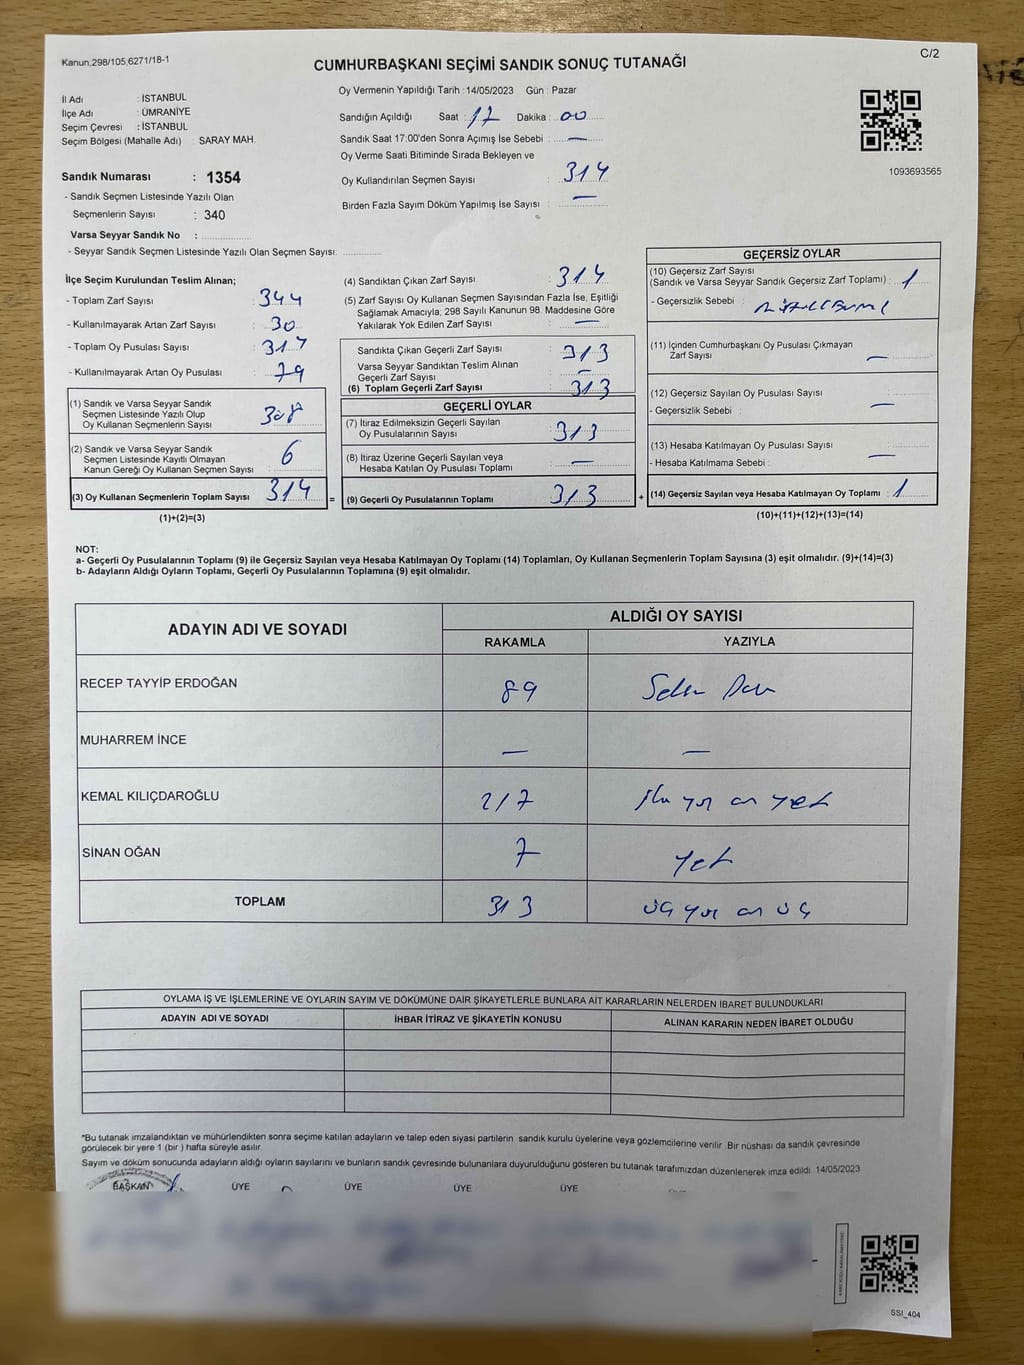 Kanun:298/105,6271/18-1
C/2
CUMHURBAŞKANI SEÇİMİ SANDIK SONUÇ TUTANAĞI
Oy Vermenin Yapıldığı Tarih :14/05/2023 Gün : Pazar
İl Adı : İSTANBUL
İlçe Adı : ÜMRANİYE
Seçim Çevresi : İSTANBUL
Seçim Bölgesi (Mahalle Adı) : SARAY MAH.
Sandığın Açıldığı Saat : 17 Dakika : 00
Sandık Saat 17:00'den Sonra Açımış İse Sebebi : —
Oy Verme Saati Bitiminde Sırada Bekleyen ve
Oy Kullandırılan Seçmen Sayısı : 314
Birden Fazla Sayım Döküm Yapılmış İse Sayısı : —
1093693565
Sandık Numarası : 1354
- Sandık Seçmen Listesinde Yazılı Olan
Seçmenlerin Sayısı : 340
Varsa Seyyar Sandık No :
- Seyyar Sandık Seçmen Listesinde Yazılı Olan Seçmen Sayısı:
İlçe Seçim Kurulundan Teslim Alınan;
- Toplam Zarf Sayısı : 344
- Kullanılmayarak Artan Zarf Sayısı : 30
- Toplam Oy Pusulası Sayısı :
- Kullanılmayarak Artan Oy Pusulası : 79
(1) Sandık ve Varsa Seyyar Sandık
Seçmen Listesinde Yazılı Olup
Oy Kullanan Seçmenlerin Sayısı : 308
(2) Sandık ve Varsa Seyyar Sandık
Seçmen Listesinde Kayıtlı Olmayan
Kanun Gereği Oy Kullanan Seçmen Sayısı : 6
(3) Oy Kullanan Seçmenlerin Toplam Sayısı : 314
(1)+(2)=(3)
=
(4) Sandıktan Çıkan Zarf Sayısı : 314
(5) Zarf Sayısı Oy Kullanan Seçmen Sayısından Fazla İse, Eşitliği
Sağlamak Amacıyla; 298 Sayılı Kanunun 98. Maddesine Göre
Yakılarak Yok Edilen Zarf Sayısı : —
Sandıkta Çıkan Geçerli Zarf Sayısı : 313
Varsa Seyyar Sandıktan Teslim Alınan
Geçerli Zarf Sayısı : —
(6) Toplam Geçerli Zarf Sayısı : 313
GEÇERLİ OYLAR
(7) İtiraz Edilmeksizin Geçerli Sayılan
Oy Pusulalarının Sayısı : 313
(8) İtiraz Üzerine Geçerli Sayılan veya
Hesaba Katılan Oy Pusulası Toplamı : —
(9) Geçerli Oy Pusulalarının Toplamı : 313
+
GEÇERSİZ OYLAR
(10) Geçersiz Zarf Sayısı
(Sandık ve Varsa Seyyar Sandık Geçersiz Zarf Toplamı) : 1
- Geçersizlik Sebebi :
(11) İçinden Cumhurbaşkanı Oy Pusulası Çıkmayan
Zarf Sayısı : —
(12) Geçersiz Sayılan Oy Pusulası Sayısı :
- Geçersizlik Sebebi : —
(13) Hesaba Katılmayan Oy Pusulası Sayısı :
- Hesaba Katılmama Sebebi : —
(14) Geçersiz Sayılan veya Hesaba Katılmayan Oy Toplamı : 1
(10)+(11)+(12)+(13)=(14)
NOT:
a- Geçerli Oy Pusulalarının Toplamı (9) ile Geçersiz Sayılan veya Hesaba Katılmayan Oy Toplamı (14) Toplamları, Oy Kullanan Seçmenlerin Toplam Sayısına (3) eşit olmalıdır. (9)+(14)=(3)
b- Adayların Aldığı Oyların Toplamı, Geçerli Oy Pusulalarının Toplamına (9) eşit olmalıdır.
ADAYIN ADI VE SOYADI
ALDIĞI OY SAYISI
RAKAMLA YAZIYLA
RECEP TAYYİP ERDOĞAN 89
MUHARREM İNCE — —
KEMAL KILIÇDAROĞLU 217 iki yüz on yedi
SİNAN OĞAN 7 yedi
TOPLAM 313 üç yüz on üç
OYLAMA İŞ VE İŞLEMLERİNE VE OYLARIN SAYIM VE DÖKÜMÜNE DAİR ŞİKAYETLERLE BUNLARA AİT KARARLARIN NELERDEN İBARET BULUNDUKLARI
ADAYIN ADI VE SOYADI İHBAR İTİRAZ VE ŞİKAYETİN KONUSU ALINAN KARARIN NEDEN İBARET OLDUĞU
*Bu tutanak imzalandıktan ve mühürlendikten sonra seçime katılan adayların ve talep eden siyasi partilerin sandık kurulu üyelerine veya gözlemcilerine verilir. Bir nüshası da sandık çevresinde
görülecek bir yere 1 (bir ) hafta süreyle asılır.
Sayım ve döküm sonucunda adayların aldığı oyların sayılarını ve bunların sandık çevresinde bulunanlara duyurulduğunu gösteren bu tutanak tarafımızdan düzenlenerek imza edildi. 14/05/2023
BAŞKAN ÜYE ÜYE ÜYE ÜYE
SSI_404